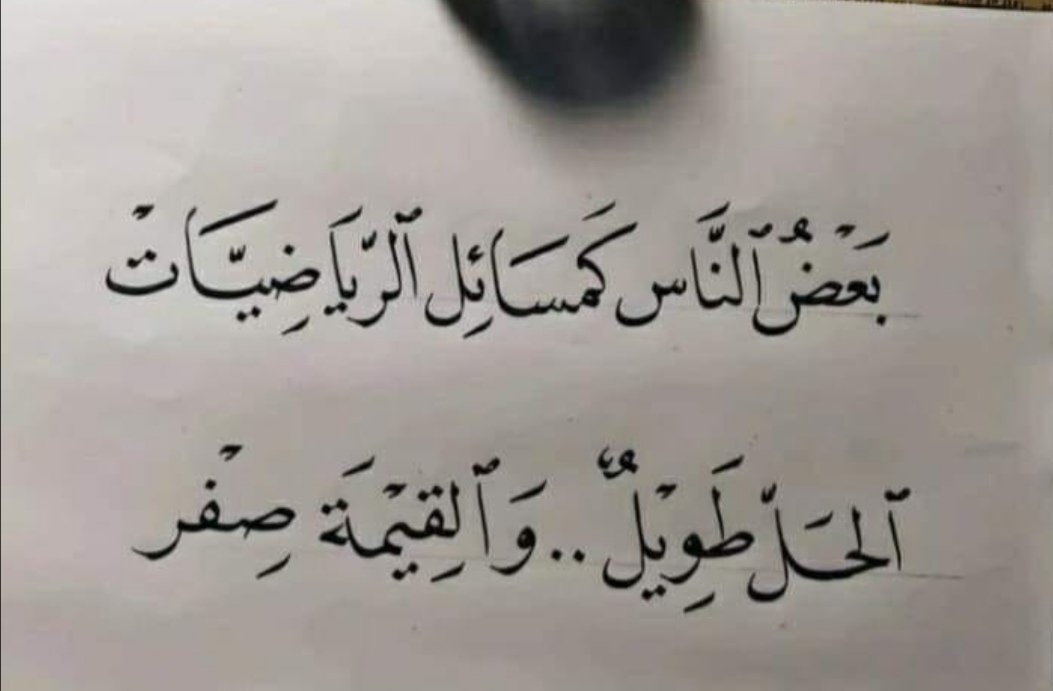 بَعْضُ ٱلنَّاس كَمَسَائِل ٱلرِّيَاضِيَّاتْ
ٱلحَلّ طَوِيْلٌ .. وَٱلقِيْمَة صِفْر